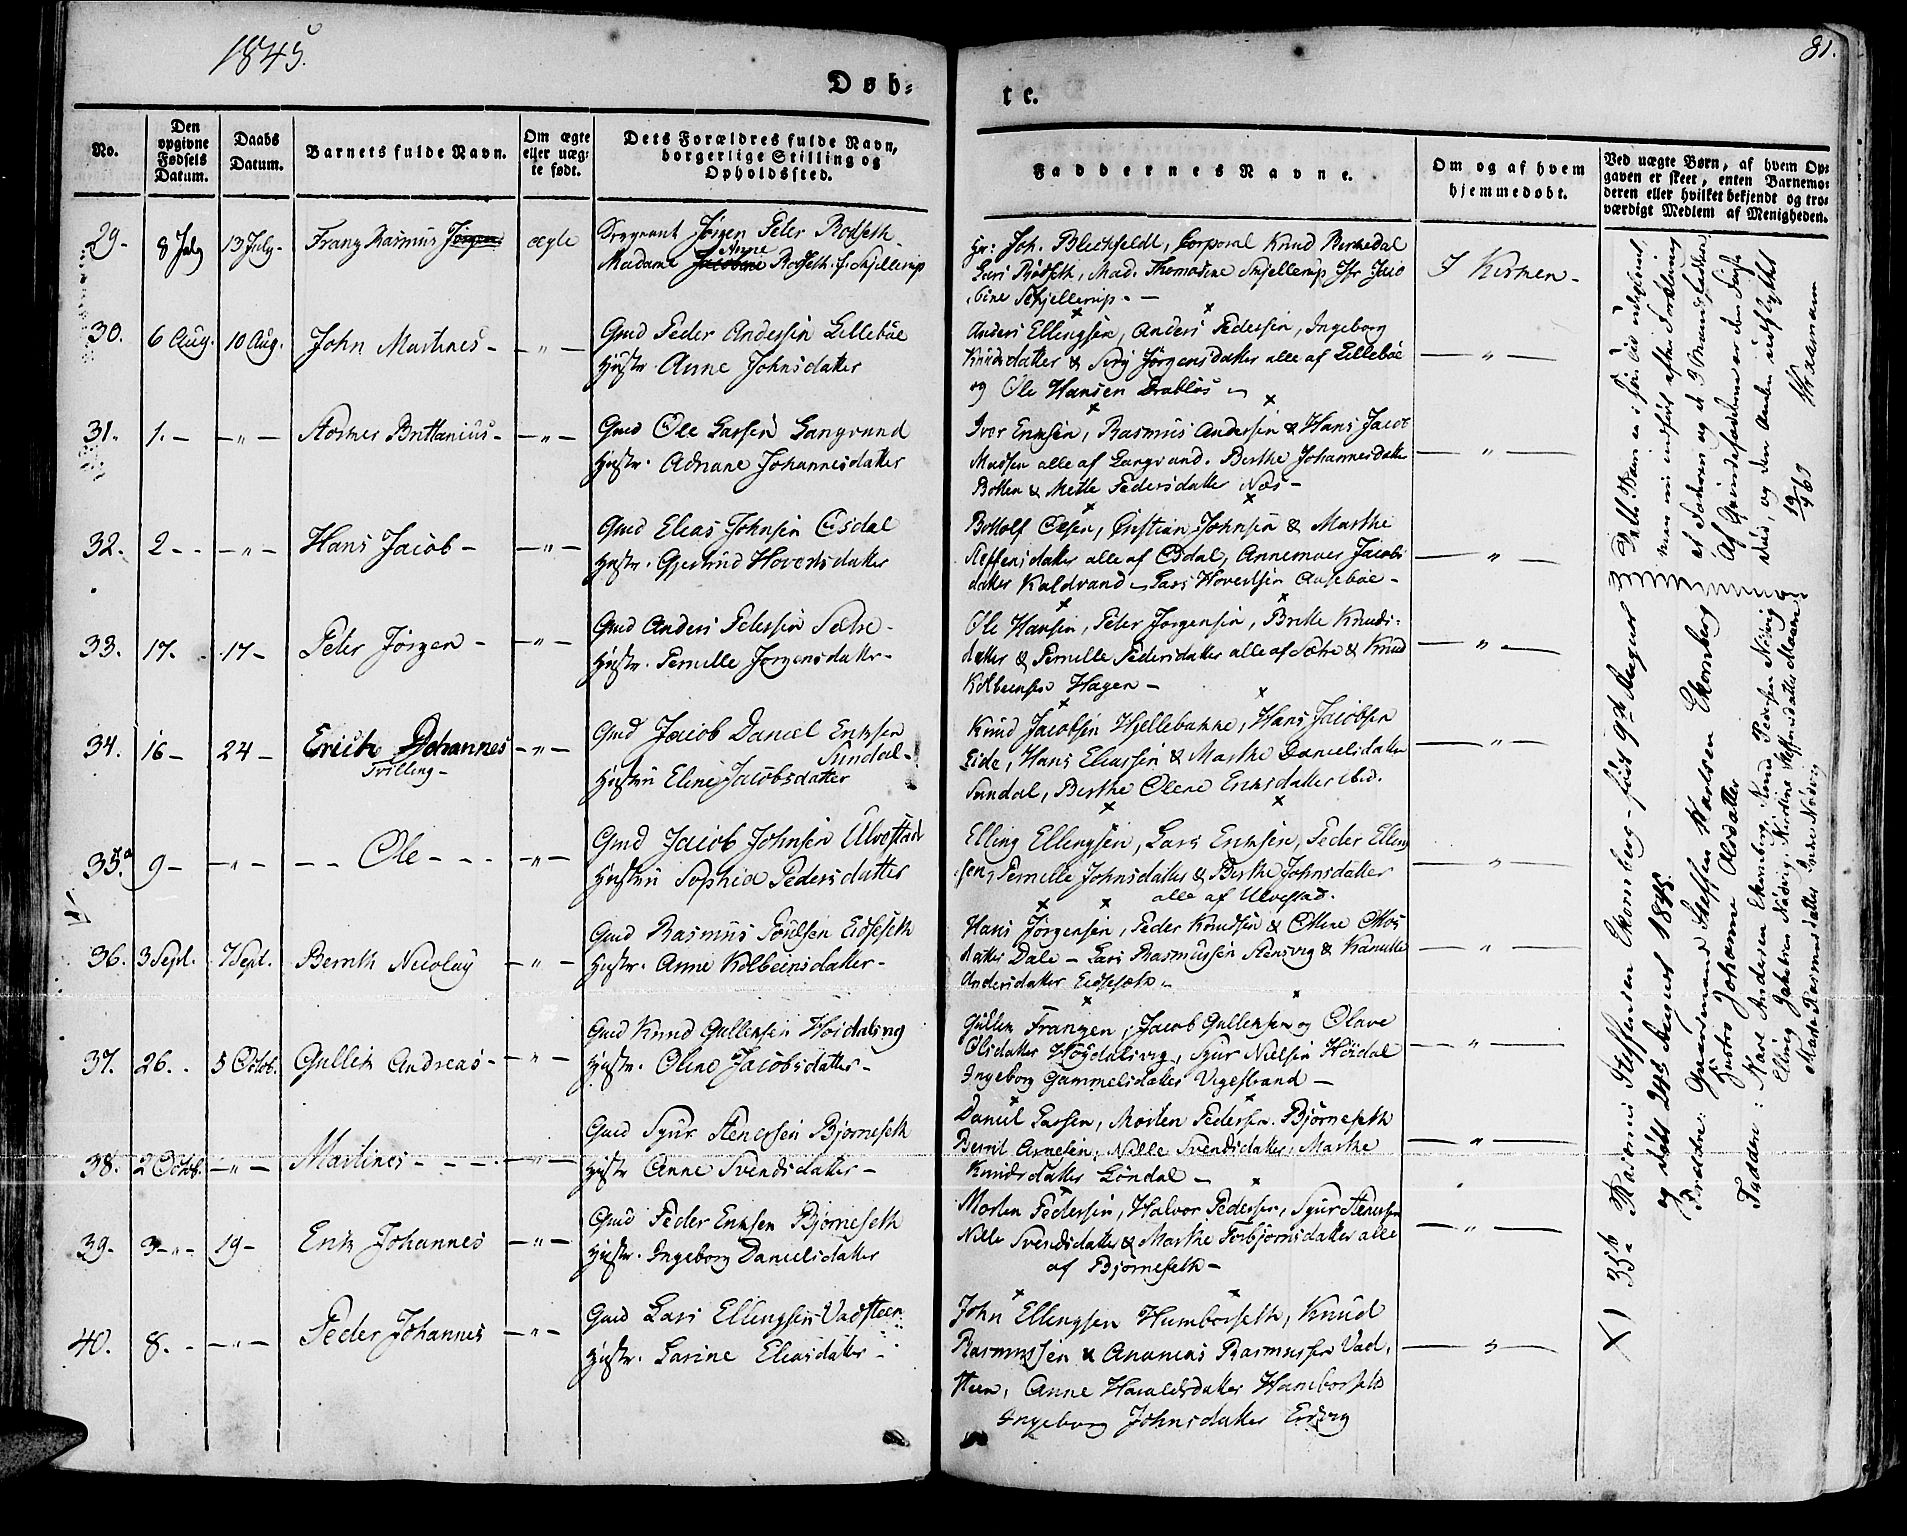 1845.
81.
Døb-
te.
No.
Den opgivne Fødsels Datum.
Daabs Datum.
Barnets fulde Navn.
Om ægte eller uægte født.
Dets Forældres fulde Navn, borgerlige Stilling og Opholdssted.
Faddernes Navne.
Om og af hvem hjemmedøbt.
Ved uægte Børn, af hvem Opgaven er skeet, enten Barnemoderen eller hvilket bekjendt og troværdigt Medlem af Menigheden.
29. 8 July 13 July Franz Rasmus Jørgen ægte
Jørgen Peter Rodseth
Anne
Madame Jacobine Rodseth f. Skjellerup
Hr: Joh. Blechfeldt, Corporal Knud
Lars Rødseth, Mad. Thomasine Skjellerup Jfr Jaco
bine Skjellerup. —
I Kirken -
30. 6 Aug. 10 Aug. John Martines - — " —
Gmd Peder Andersen Lillebøe
Hustr. Anne Johnsdatter
Anders Ellingsen, Anders Pedersen, Ingeborg
Knudsdatter & Siri Jørgensdatter alle af Lillebøe
og Ole Hansen Drabløs
— " —
31. 1. — — " — Brittanius - — " —
Gmd Ole Larsen Langvand
Hustr. Adriane Johannesdatter
Iver Eriksen, Rasmus Andersen & Hans Jacob
Madsen alle af Langvand. Berthe Johannesdatter
Botten & Mette Pedersdatter Næs -
— " —
32. 2 - - — " — Hans Jacob - — " —
Gmd Elias Johnsen Osdal
Hustr. Gjertrud Hovertsdatter
Botholf Olsen, Christian Johnsen & Marthe
Steffensdatter alle af Osdal, Jacobs
datter Kaldvand - Lars Hovertsen Aasebøe -
— " —
33. 17. 17 - Peter Jørgen - — " —
Gmd Anders Pedersen Sætre -
Hustr. Pernille Jørgensdatter -
Ole Hansen, Peter Jørgensen, Britte Knuds-
datter & Pernille Pedersdatter alle af Sætre & Knud
Kolbeensen Hagen -
— " —
34. 16 - 24 - Erich Johannes — " —
Tvilling -
Gmd Jacob Daniel Eriksen
Sundal -
Hustru Eline Jacobsdatter
Knud Jacobsen Hjellebakke, Hans Jacobsen
Eide, Hans Eliassen & Marthe Danielsdatter
Sundal, Berthe Olene Eriksdatter ibid.
— " —
35.a 9 - — " — - - Ole - - - — " —
Gmd Jacob Johnsen Ulvestad
Hustru Sophia Pedersdatter
Elling Ellingsen, Lars Eriksen, Peder Elling
sen, Pernille Johnsdatter & Berthe Johnsdatter
alle af Ulvestad.
— " —
36. 3 Sept. 7 Sept. Bernth Nicolay — " —
Gmd Rasmus Poulsen Eidseseth
Hustr. Anne Kolbeensdatter -
Hans Jørgensen, Peder Knudsen & Oline Olds
datter Dale - Lars Rasmussen Stensvig & Kanutte
Andersdatter Eidseseth -
— " —
37. 26. - 5 Octob. Gullik Andreas - — " —
Gmd Knud Gulliksen Høidalsvig
Hustr. Oline Jacobsdatter -
Gullik Franzen, Jacob Gulliksen og Olave
Olsdatter Høydalsvig, Syur Nielsen Høidal
Ingeborg Gammelsdatter Vigestrand —
— " —
38. 2 Octob. — " — Martines - - - - — " —
Gmd Syur Stenersen Bjørneseth
Hustr Anne Svendsdatter -
Daniel Larsen, Morten Pedersen Bjørneseth
Berrit Arnesen, Nille Svendsdatter, Marthe
Knudsdatter Løndal -
— " —
39. 3 - " - 19 - Erik Johannes — " —
Gmd Peder Eriksen Bjørneseth
Hustr. Ingeborg Danielsdatter
Morten Pedersen, Halvor Pedersen, Syur Stenersen
Nille Svendsdatter & Marthe Torbjørnsdatter alle
af Bjørneseth -
— " —
40. 8. - — " — Peder Johannes — " —
Gmd Lars Ellingsen Vadsteen
Hustr. Larine Eliasdatter -
John Ellingsen Humborseth, Knud
Rasmussen & Ananias Rasmussen Vad-
steen, Anne Haraldsdatter Hamborseth
Ingeborg Johnsdatter Ersvig
— " —
X) 35b Rasmus Steffensen Ekornberg - født 9de August
og døbt 24de August 1845.
Forældre: Gaardmand Steffen Karlsen Ekornberg
Hustro Johanne Olsdatter
Faddere: Kars Andersen Ekornberg, Knud Pedersen Nødvig
Elling Jakobsen Nødvig, Kirstine Steffensdatter
Marte Rasmusdatter Indre Nødvig
Dette Barn er i sin Tid udeglemt,
men nu indført efter Forklaring
af Faderen og de 3 Mandfaddere.
Af Qvindefadderne er den første
død, og den anden udflyttet